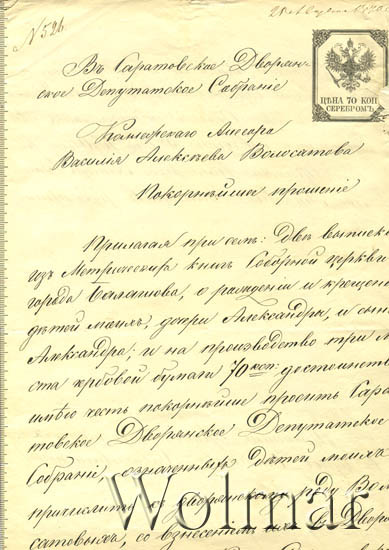 N 526
ЦѢНА 70 КОП
СЕРЕБРОМЪ
Въ Саратовское Дворян-
ское Депутатское Собраніе
Коллежскаго Ассесора
Василія Алексѣева Волосатова
Покорнѣйшее прошеніе
Прилагая при семъ: двѣ выписки
изъ Метрическихъ книгъ Соборной церкви
города Балашова, о рожденіи и крещеніи
дѣтей моихъ, дочери Александры, и сына
Александра; и на производство три ли-
ста гербовой бумаги 70 коп: достоинства
имѣю честь покорнѣйше просить Сара-
товское Дворянское Депутатское
Собраніе означенныхъ дѣтей моихъ
причислить къ дворянскому роду Воло-
сатовыхъ, со внесеніемъ въ Дворян
Wolmar